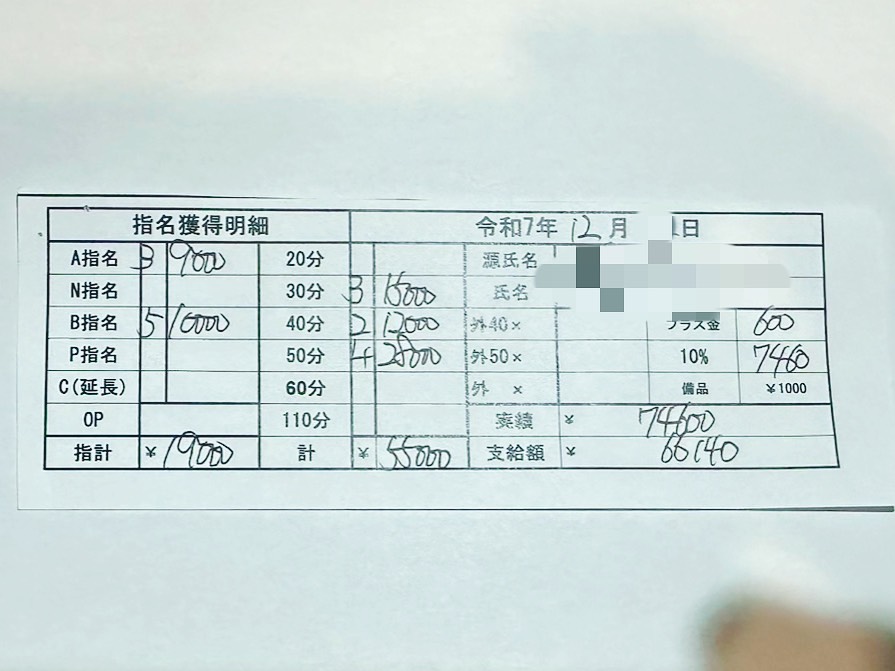 指名獲得明細 令和7年 12月 1日
A指名 3 9000 20分 源氏名
N指名 30分 3 15000 氏名
B指名 5 10000 40分 2 12000 外40× プラス金 600
P指名 50分 4 28000 外50× 10% 7460
C(延長) 60分 外 × 備品 ¥1000
OP 110分 実績 ¥ 74600
指計 ¥ 19000 計 ¥ 55000 支給額 ¥ 66140